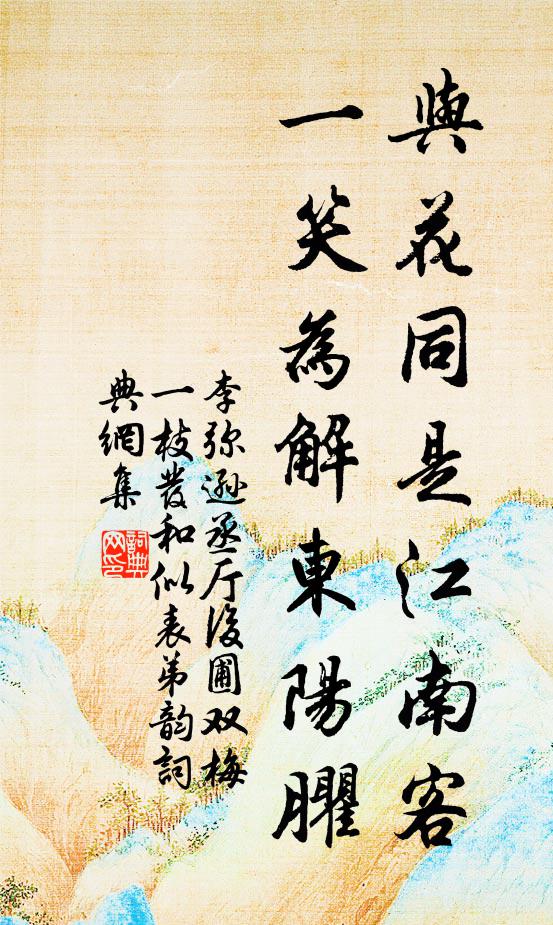 與花同是江南客
一笑為解東陽臞
李弥遜丞厅後圃双梅
一枝發和似表弟韵詞
典網集
詞典
网印